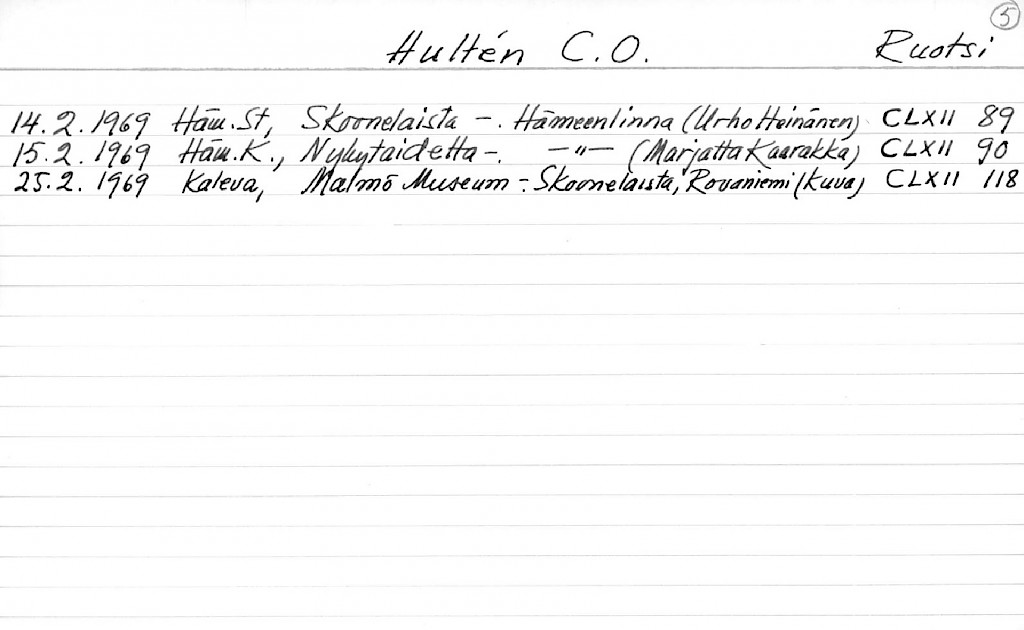 5
Hultén C.O. Ruotsi
14.2.1969 Häm.St, Skoonelaista -. Hämeenlinna (Urho Heinänen) CLXII 89
15.2.1969 Häm.K., Nykytaidetta -. -"- (Marjatta Kaarakka) CLXII 90
25.2.1969 Kaleva, Malmö Museum -: Skoonelaista, Rovaniemi (kuva) CLXII 118